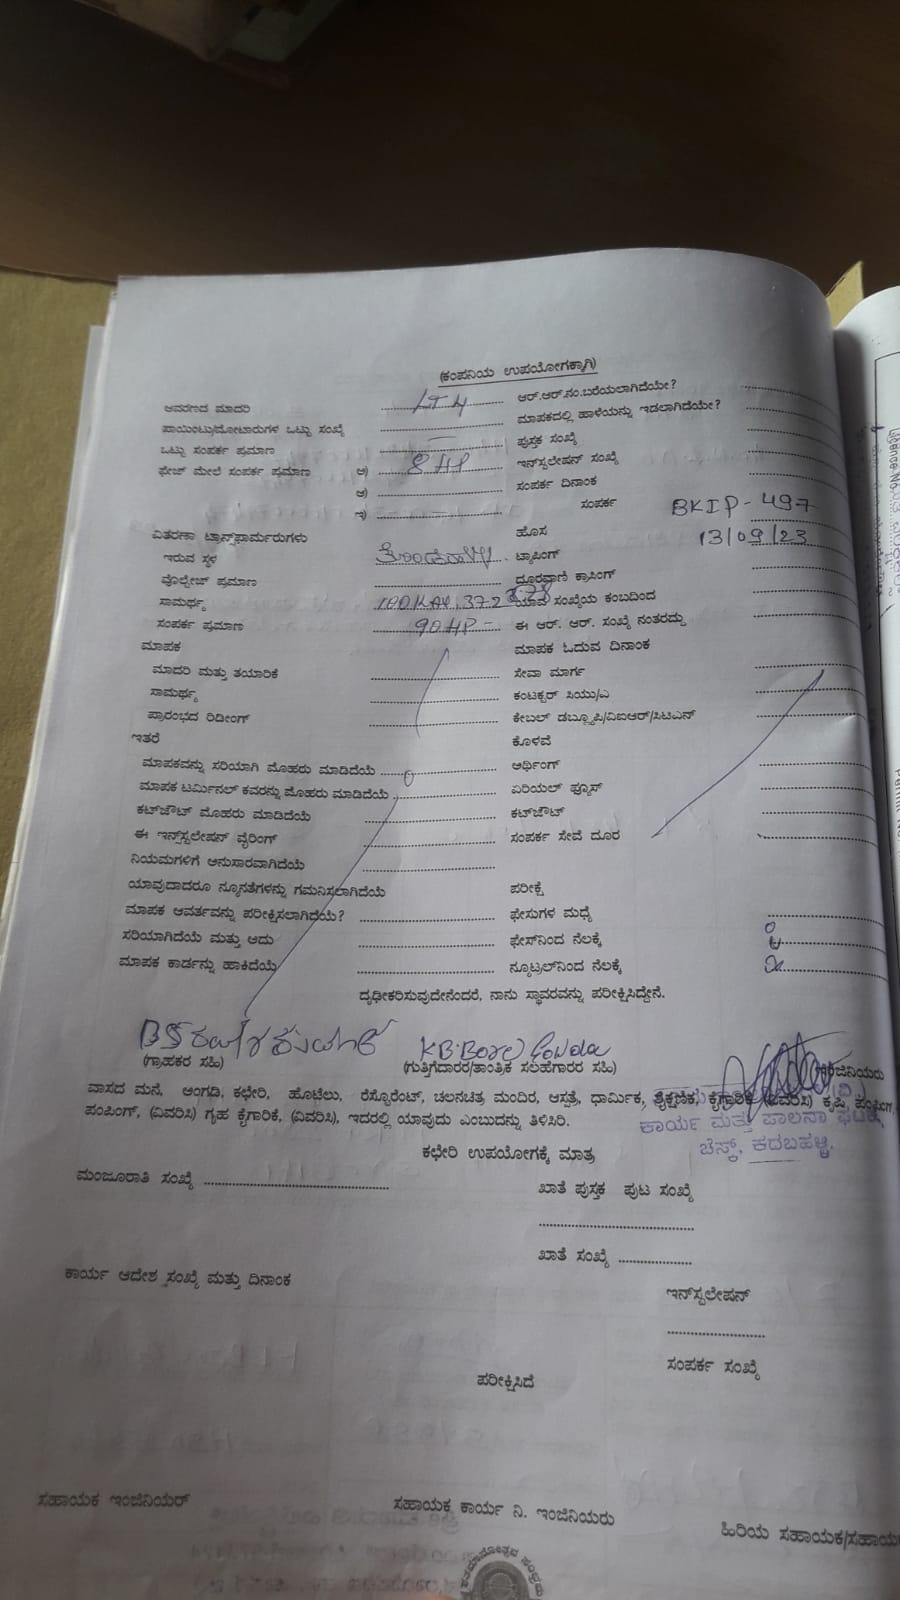 (ಕಂಪನಿಯ ಉಪಯೋಗಕ್ಕಾಗಿ)
ಆವರಣದ ಮಾದರಿ LT4 ಆರ್.ಆರ್.ನಂ.ಬರೆಯಲಾಗಿದೆಯೇ?
ಪಾಯಿಂಟು/ಮೋಟಾರುಗಳ ಒಟ್ಟು ಸಂಖ್ಯೆ ಮಾಪಕದಲ್ಲಿ ಹಾಳೆಯನ್ನು ಇಡಲಾಗಿದೆಯೇ?
ಒಟ್ಟು ಸಂಪರ್ಕ ಪ್ರಮಾಣ ಪುಸ್ತಕ ಸಂಖ್ಯೆ
ಫೇಜ್ ಮೇಲೆ ಸಂಪರ್ಕ ಪ್ರಮಾಣ ಅ) 8 HP ಇನ್‌ಸ್ಟಲೇಷನ್ ಸಂಖ್ಯೆ
ಆ) ಸಂಪರ್ಕ ದಿನಾಂಕ
ಇ) ಸಂಪರ್ಕ BKIP-497
ವಿತರಣಾ ಟ್ರಾನ್ಸ್‌ಫಾರ್ಮರುಗಳು ಹೊಸ 13/09/23
ಇರುವ ಸ್ಥಳ ಟ್ಯಾಪಿಂಗ್
ವೊಲ್ಟೇಜ್ ಪ್ರಮಾಣ ದೂರವಾಣಿ ಕ್ರಾಸಿಂಗ್
ಸಾಮರ್ಥ್ಯ ಯಾವ ಸಂಖ್ಯೆಯ ಕಂಬದಿಂದ
ಸಂಪರ್ಕ ಪ್ರಮಾಣ 90HP - ಈ ಆರ್. ಆರ್. ಸಂಖ್ಯೆ ನಂತರದ್ದು
ಮಾಪಕ ಮಾಪಕ ಓದುವ ದಿನಾಂಕ
ಮಾದರಿ ಮತ್ತು ತಯಾರಿಕೆ ಸೇವಾ ಮಾರ್ಗ
ಸಾಮರ್ಥ್ಯ ಕಂಟಕ್ಟರ್ ಸಿಯು/ಎ
ಪ್ರಾರಂಭದ ರಿಡೀಂಗ್ ಕೇಬಲ್ ಡಬ್ಲ್ಯೂಪಿ/ವಿಐಆರ್/ಸಿಟಿಎನ್
ಇತರೆ ಕೊಳವೆ
ಮಾಪಕವನ್ನು ಸರಿಯಾಗಿ ಮೊಹರು ಮಾಡಿದೆಯೆ ಅರ್ಥಿಂಗ್
ಮಾಪಕ ಟರ್ಮಿನಲ್ ಕವರನ್ನು ಮೊಹರು ಮಾಡಿದೆಯೆ ಏರಿಯಲ್ ಫ್ಯೂಸ್
ಕಟ್‌ಜೌಟ್ ಮೊಹರು ಮಾಡಿದೆಯೆ ಕಟ್‌ಜೌಟ್
ಈ ಇನ್‌ಸ್ಟಲೇಷನ್ ವೈರಿಂಗ್ ಸಂಪರ್ಕ ಸೇವೆ ದೂರ
ನಿಯಮಗಳಿಗೆ ಅನುಸಾರವಾಗಿದೆಯೆ
ಯಾವುದಾದರೂ ನ್ಯೂನತೆಗಳನ್ನು ಗಮನಿಸಲಾಗಿದೆಯೆ ಪರೀಕ್ಷೆ
ಮಾಪಕ ಆವರ್ತವನ್ನು ಪರೀಕ್ಷಿಸಲಾಗಿದೆಯೆ? ಫೇಸುಗಳ ಮಧ್ಯೆ
ಸರಿಯಾಗಿದೆಯೆ ಮತ್ತು ಅದು ಫೇಸ್‌ನಿಂದ ನೆಲಕ್ಕೆ
ಮಾಪಕ ಕಾರ್ಡನ್ನು ಹಾಕಿದೆಯೆ ನ್ಯೂಟ್ರಲ್‌ನಿಂದ ನೆಲಕ್ಕೆ
ದೃಢೀಕರಿಸುವುದೇನೆಂದರೆ, ನಾನು ಸ್ಥಾವರವನ್ನು ಪರೀಕ್ಷಿಸಿದ್ದೇನೆ.
KB.Bore Gowda
(ಗ್ರಾಹಕರ ಸಹಿ) (ಗುತ್ತಿಗೆದಾರರ/ತಾಂತ್ರಿಕ ಸಲಹೆಗಾರರ ಸಹಿ)
ವಾಸದ ಮನೆ, ಅಂಗಡಿ, ಕಛೇರಿ, ಹೊಟೆಲು, ರೆಸ್ಟೊರೆಂಟ್, ಚಲನಚಿತ್ರ ಮಂದಿರ, ಆಸ್ಪತ್ರೆ, ಧಾರ್ಮಿಕ, ಶೈಕ್ಷಣಿಕ, ಕೈಗಾರಿಕೆ, (ವಿವರಿಸಿ) ಕೃಷಿ, ಪಂಪಿಂಗ್
ಪಂಪಿಂಗ್, (ವಿವರಿಸಿ) ಗೃಹ ಕೈಗಾರಿಕೆ, (ವಿವರಿಸಿ), ಇದರಲ್ಲಿ ಯಾವುದು ಎಂಬುದನ್ನು ತಿಳಿಸಿರಿ.
ಕಾರ್ಯ ಮತ್ತು ಪಾಲನಾ ಘಟಕ,
ಚೆಸ್ಕ್, ಕದಬಹಳ್ಳಿ.
ಕಛೇರಿ ಉಪಯೋಗಕ್ಕೆ ಮಾತ್ರ
ಮಂಜೂರಾತಿ ಸಂಖ್ಯೆ ಖಾತೆ ಪುಸ್ತಕ ಪುಟ ಸಂಖ್ಯೆ
ಖಾತೆ ಸಂಖ್ಯೆ
ಕಾರ್ಯ ಆದೇಶ ಸಂಖ್ಯೆ ಮತ್ತು ದಿನಾಂಕ
ಇನ್‌ಸ್ಟಲೇಷನ್
ಸಂಪರ್ಕ ಸಂಖ್ಯೆ
ಪರೀಕ್ಷಿಸಿದೆ
ಸಹಾಯಕ ಇಂಜಿನಿಯರ್ ಸಹಾಯಕ ಕಾರ್ಯ ನಿ. ಇಂಜಿನಿಯರು
ಹಿರಿಯ ಸಹಾಯಕ/ಸಹಾಯಕ